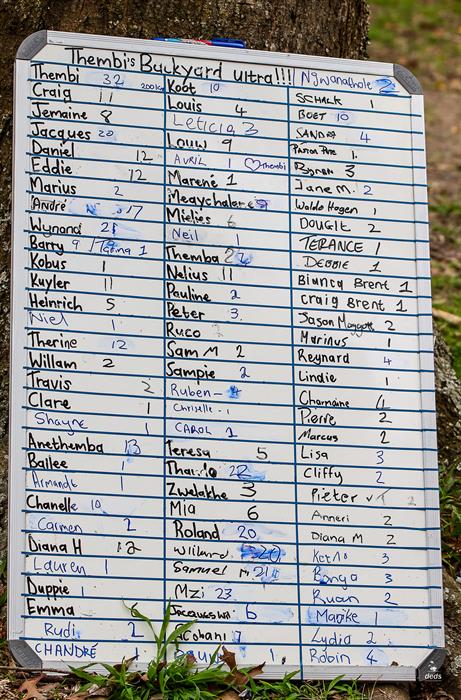 Thembi's Backyard ultra!!!
Thembi 32 200km
Craig 11
Jemaine 8
Jacques 20
Daniel 12
Eddie 12
Marius 2
André 17
Wynand 21
Barry 9 / Tarina 1
Kobus 1
Kuyler 11
Heinrich 5
Niel 1
Therine 12
Willam 2
Travis 2
Clare 1
Shayne 1
Anethemba 13
Bailee 1
Armandt 1
Chanelle 10
Carmen 2
Diana H 12
Lauren 1
Duppie 1
Emma
Rudi 2
CHANDRÉ 1
Koot 10
Louis 4
Leticia 3
Louw 9
AVRIL 1 ♡Thembi
Marené 1
Mielies 6
Neil 1
Themba
Nelius 11
Pauline 2
Peter 3
Ruco
Sam M 2
Sampie 2
Ruben -
Christelle - 1
CAROL 1
Teresa 5
22
Zwelakhe 3
Mia 6
Roland 20
Willand 20
Samuel M 21
Mzi 23
Jacques WH 6
1
SCHALK 1
BOET 10
SANDRA 4
1
Byron 3
Jane M. 2
Waldo Hagen 1
DOUGIE 2
TERANCE 1
DEBBIE 1
Bianca Brent 1
Craig Brent 1
Jason 2
Marinus 1
Reynard 4
Lindie 1
Charnaine 4
Pierre 2
Marcus 2
Lisa 3
Cliffy 2
Pieter
Anneri 2
Diana M 2
3
Bongo 3
Ruan 2
Marike 1
Lydia 2
Robin 4
deds